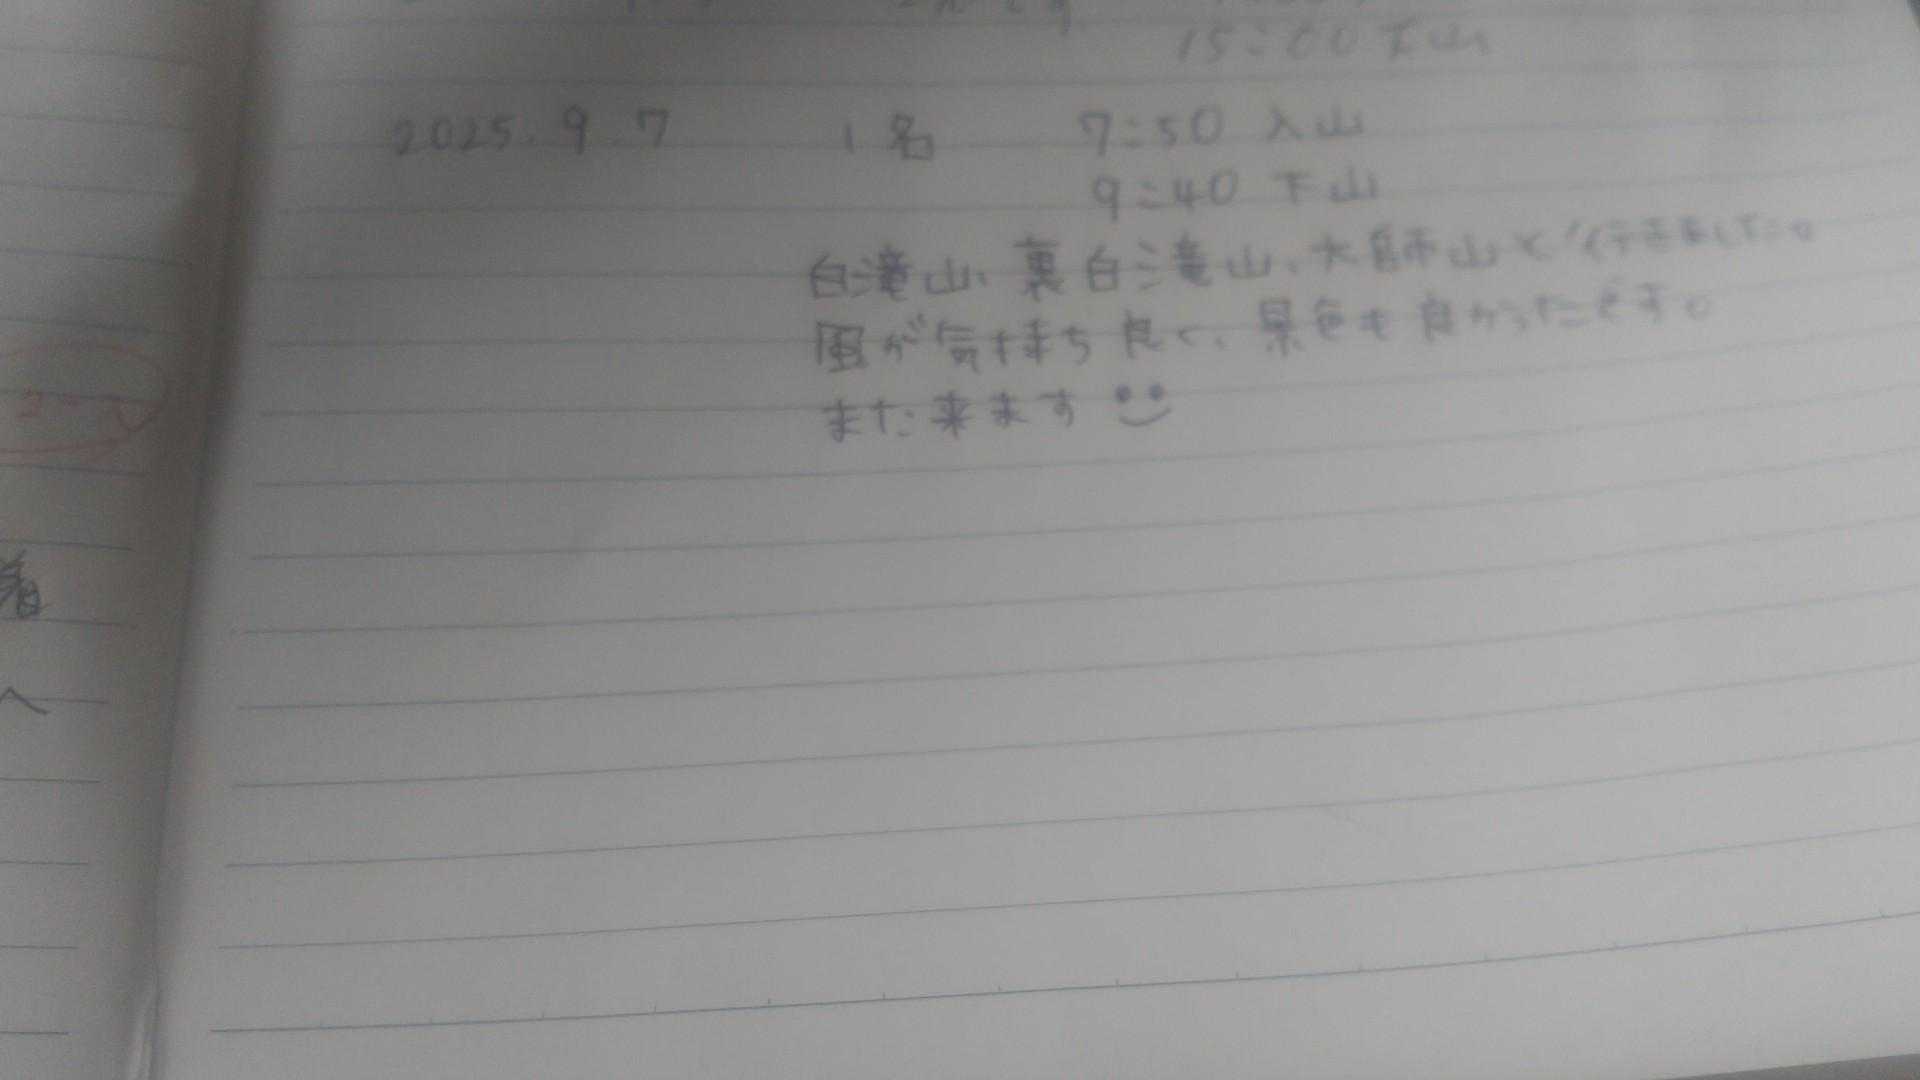 15:00 下山
2025.9.7 1名 7:50 入山
9:40 下山
白滝山、裏白滝山、大師山と行きました。
風が気持ち良く、景色も良かったです。
また来ます
着
へ